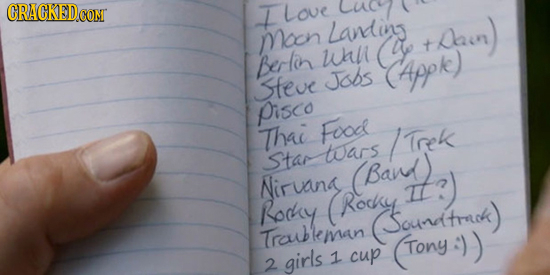 CRACKED.COM
I Love Lucy
Moon Landing
Berlin Wall (Up + Down)
Steve Jobs (Apple)
Disco
Thai Food
Star Wars / Trek
Nirvana (Band)
Rocky (Rocky II?)
Troubleman (Soundtrack)
2 girls 1 cup (Tony :))